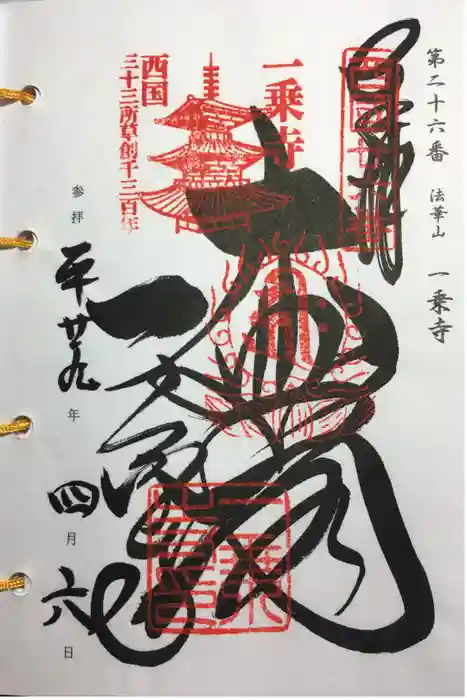 第二十六番 法華山 一乗寺
奉拝
西国廿六番
一乗寺
西国
三十三所草創千三百年
大悲殿
一乗寺
参拝 平廿九年 四月六日